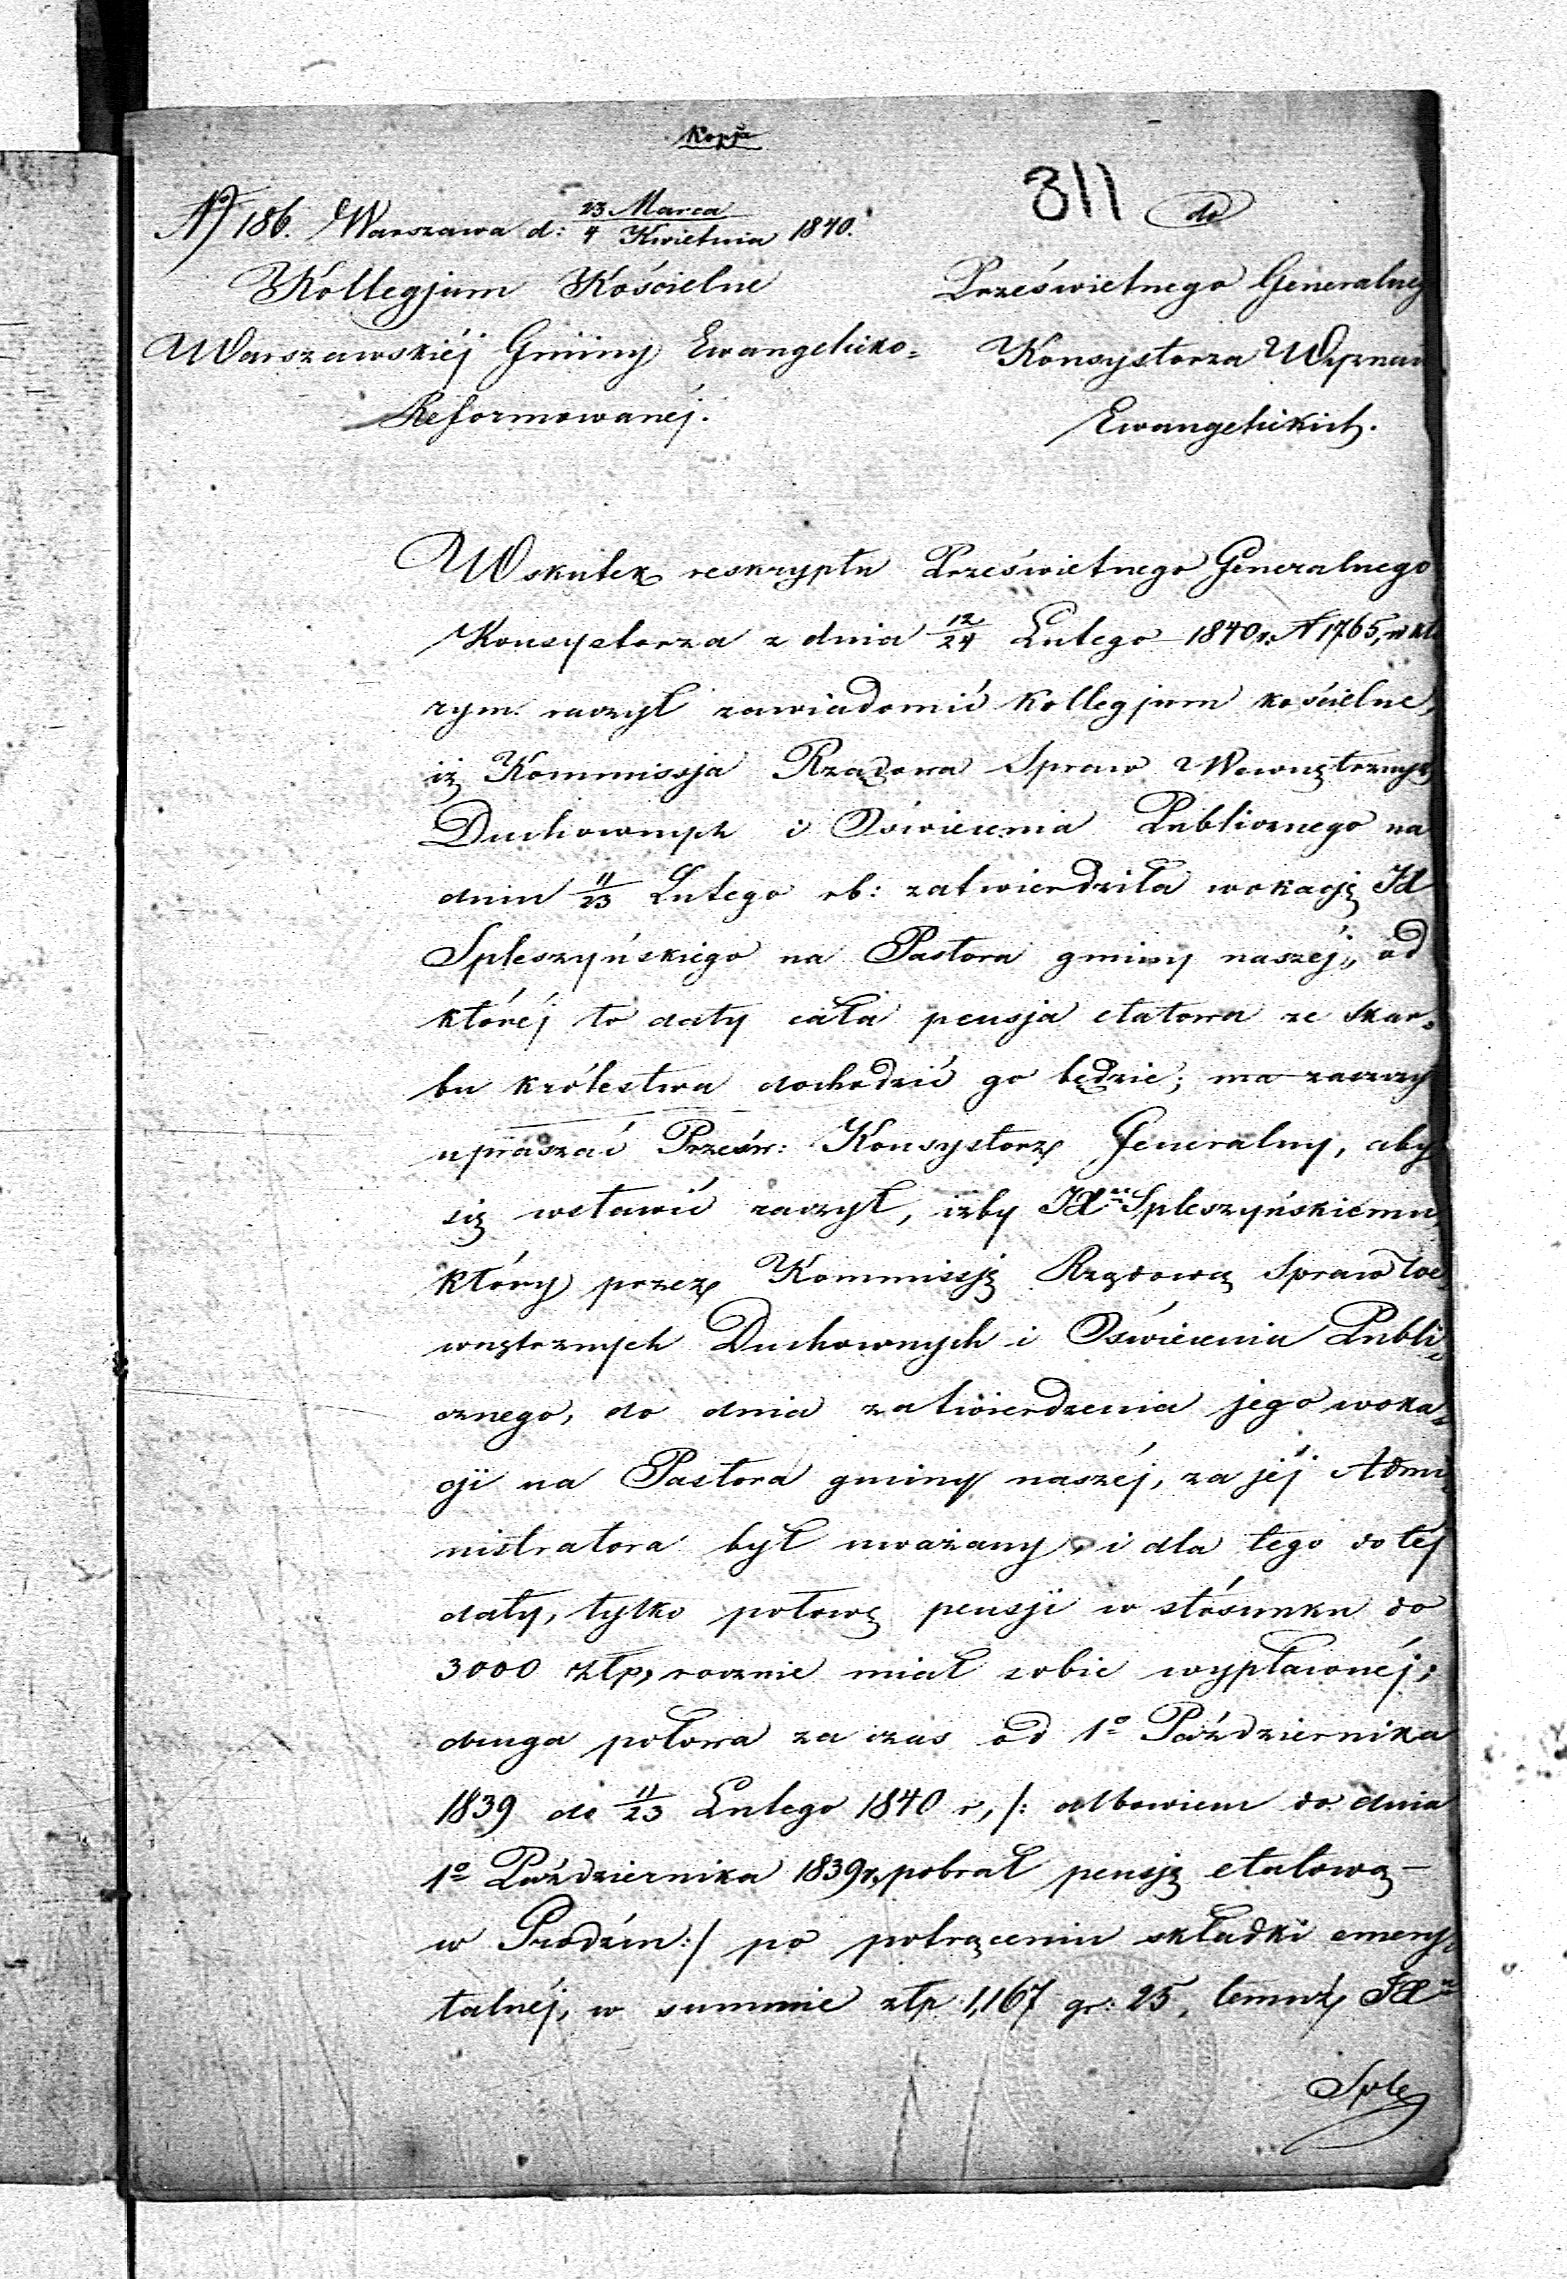 Kopja
311
do
№ 186. Warszawa d: 23 Marca / 4 Kwietnia 1840.
Kollegjum Kościelne
Warszawskiéj Gminy Ewangelicko=
Reformowanéj.
Prześwietnego Generalneg
Konsystorza Wyznań
Ewangelickich.
W skutek reskryptu Prześwietnego Generalnego
Konsystorza z dnia 12/24 Lutego 1840 r. N 1765, w któ
rym raczył zawiadomić kollegjum kościelne,
iż Kommissja Rządowa Spraw Wewnętrznych
Duchownych i Oświecenia Publicznego na
dniu 11/23 Lutego rb: zatwierdziła wokację Xd
Spleszyńskiego na Pastora gminy naszéj, od
któréj to daty cała pensja etatowa ze skar=
bu królestwa dochodzić go będzie; ma zaszczy
upraszać Prześw: Konsystorz Generalny, aby
się wstawić raczył, iżby Xdu Spleszyńskiemu,
który przez Kommissję Rządową Spraw We=
wnętrznych Duchownych i Oświecenia Publi=
cznego, do dnia zatwierdzenia jego woka=
cji na Pastora gminy naszéj, za jéj Admi=
nistratora był uważany, i dla tego do téj
daty, tylko połowę pensji w stósunku do
3000 złp, rocznie miał sobie wypłaconéj;
druga połowa za czas od 1º Października
1839 do 11/23 Lutego 1840 r, /: albowiem do dnia
1º Października 1839 r, pobrał pensję etatową
w :/ po potrąceniu składki emery=
talnéj, w summie złp 1,167 gr: 25, temuż Xdu
Sple